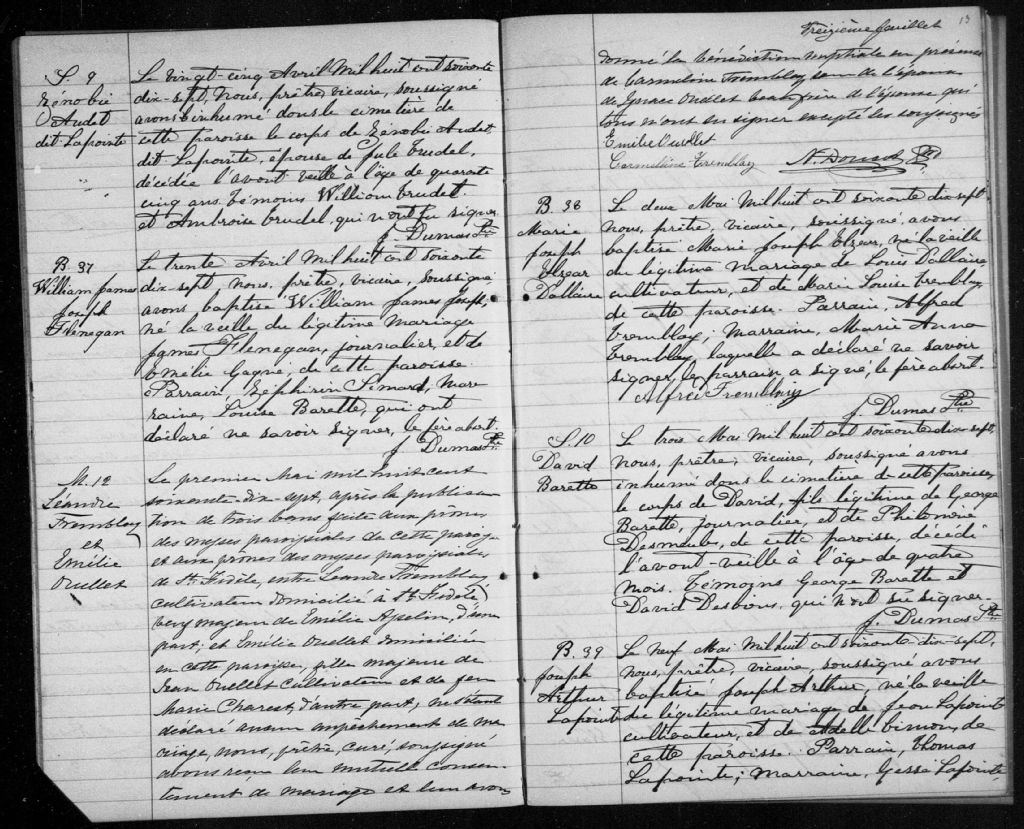 S. 9
Zénobie
Audet
dit Lapointe
Le vingt-cinq Avril Mil huit cent soixante
dix-sept, Nous, prêtre, vicaire, soussigné
avons inhumé dans le cimetière de
cette paroisse le corps de Zénobie Audet
dit Lapointe, épouse de Jule Trudel,
décédée l'avant veille à l'âge de quarante
cinq ans. Témoins William Trudel
et Ambroise Trudel, qui n'ont su signer.
J. Dumas Ptre
B. 37
William James
Joseph
Flenegan
Le trente Avril Mil huit cent soixante
dix-sept Nous, prêtre, vicaire, soussigné,
avons baptisé William James Joseph,
né la veille du légitime mariage
James Flenegan, journalier, et de
Emélie Gagné, de cette paroisse.
Parrain, Zéphirin Simard, Mar-
raine, Louise Barette, qui ont
déclaré ne savoir signer, le père absent.
J. Dumas Ptre
M. 12
Léandre
Tremblay
et
Emélie
Ouellet
Le premier Mai mil huit cent
soixante dix sept, après la publica-
tion de trois bans faite aux prônes
des messes paroissiales de cette paroisse
et aux prônes des messes paroissiales
de St. Fidèle, entre Léandre Tremblay
cultivateur domicilié à St. Fidèle
majeur de Emélie Asselin, d'une
part; et Emélie Ouellet domiciliée
en cette paroisse, fille majeure de
Jean Ouellet cultivateur et de feu
Marie Charest, d'autre part; ne s'étant
déclaré aucun empêchement de ma-
riage, nous, prêtre, curé, soussigné
avons reçu leur mutuel consen-
tement de mariage et leur avons
Treizième feuillet 13
donné la bénédiction nuptiale en présence
de Carmeline Tremblay soeur de l'époux
de Ignace Ouellet beau-frère de l'épouse qui
tous n'ont su signer excepté les soussignés
Emilie Ouellet
Carmelaine Tremblay N. Doucet Ptre
B. 38
Marie
Joseph
Elzear
Dallaire
Le deux Mai Mil huit cent soixante dix-sept
Nous, prêtre, vicaire, soussigné, avons
baptisé Marie Joseph Elzear, né la veille
du légitime mariage de Louis Dallaire
cultivateur, et de Marie Louise Tremblay
de cette paroisse. Parrain, Alfred
Tremblay; Marraine, Marie Anna
Tremblay, laquelle a déclaré ne savoir
signer, le parrain a signé, le père absent.
Alfred Tremblay
J. Dumas Ptre
S. 10
David
Barette
Le trois Mai Mil huit cent soixante dix-sept,
Nous, prêtre, vicaire, soussigné avons
inhumé dans le cimetière de cette paroisse,
le corps de David, fils légitime de George
Barette, journalier, et de Philomène
Desmeules, de cette paroisse, décédé
l'avant-veille à l'âge de quatre
mois. Témoins George Barette et
David Desbiens, qui n'ont su signer.
J. Dumas Ptre
B. 39
Joseph
Arthur
Lapointe
Le neuf Mai Mil huit cent soixante-dix-sept,
Nous, prêtre, vicaire, soussigné avons
baptisé Joseph Arthur, né la veille
du légitime mariage de Jean Lapointe
cultivateur, et de Adelle Simon, de
cette paroisse. Parrain, Thomas
Lapointe; Marraine, Gessé Lapointe,